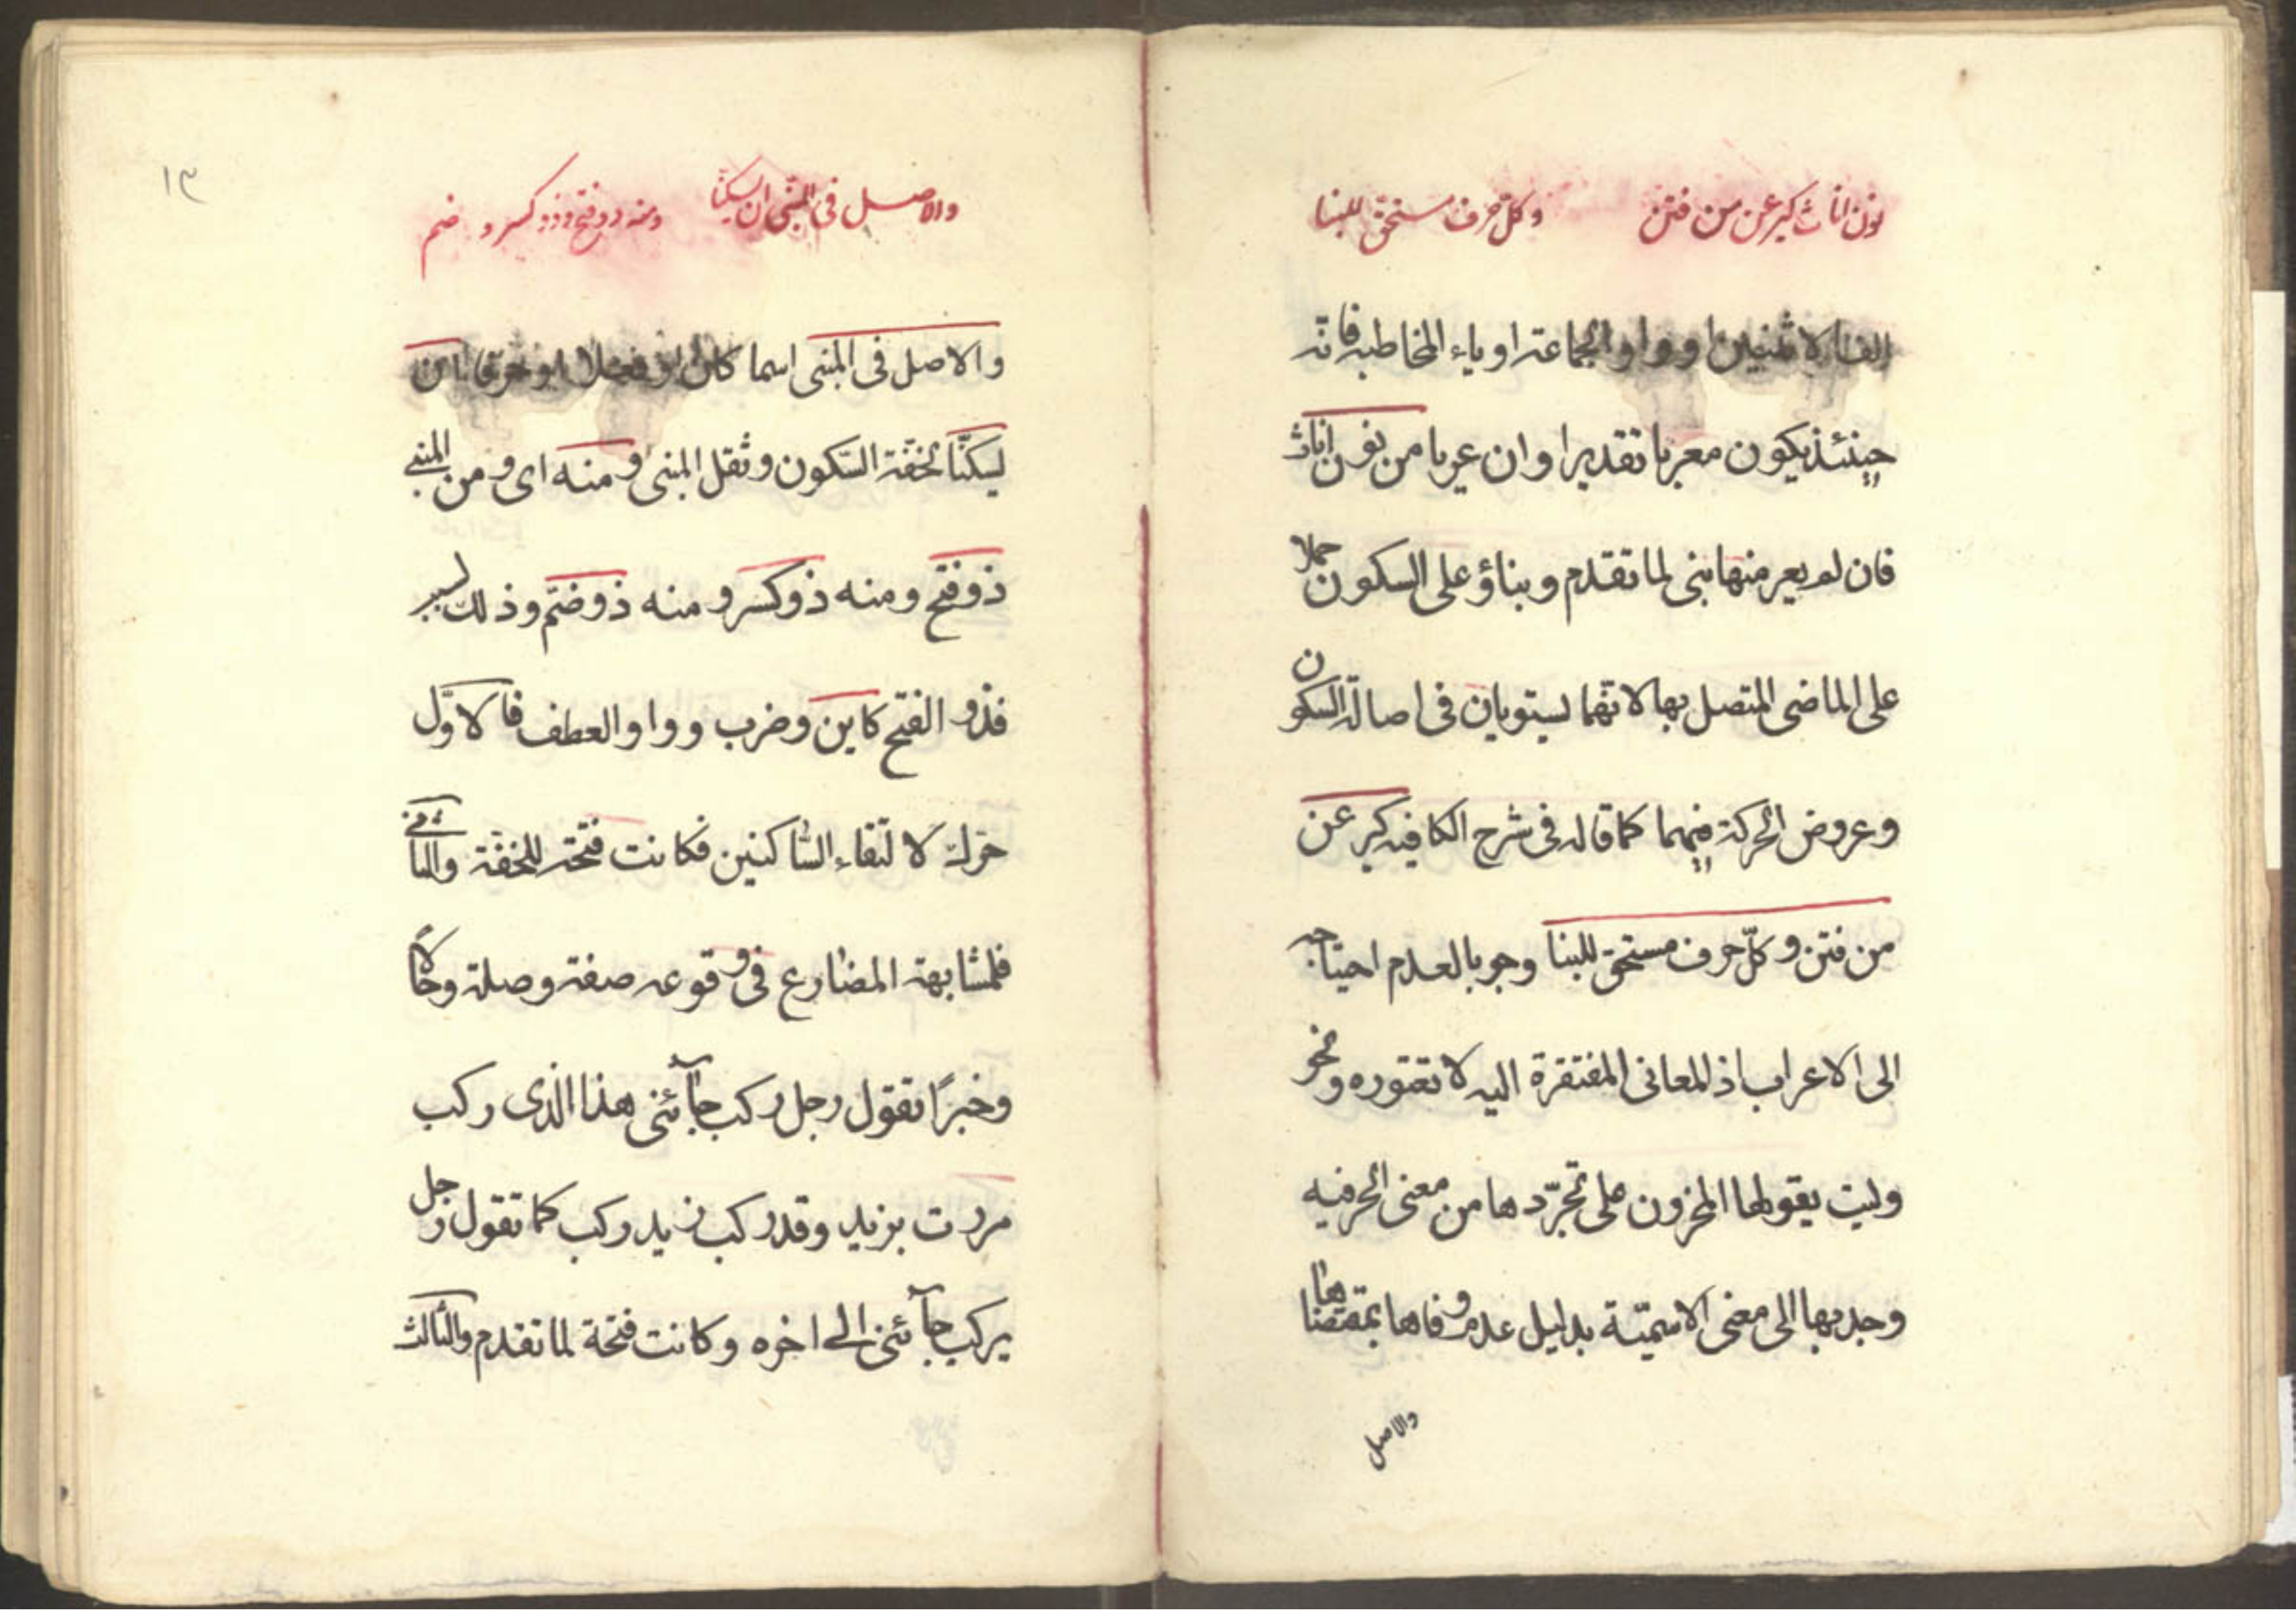 نون اناث كيرعن من فتن وكل حرف مستحق للبنا
الف الاثنين او واو الجماعة او ياء المخاطبه فانّه
حينئذ يكون معربا تقديرا وان عريا من نون اناث
فان لم يعر منها بنى لما تقدم وبناؤ على السكون حملا
على الماضى المتصل بها لانهما يستويان فى اصالة السكون
وعروض الحركة فيهما كما قاله فى شرح الكافيه كيرعن
من فتن وكلّ حرف مستحق للبنا وجوبا لعدم احتياجه
الى الاعراب اذ المعانى المفتقرة اليه لا تعتوره ونحو
وليت يقولها المحزون على تجرّدها من معنى الحرفيه
وجدبها الى معنى الاسميّة بدليل عدم وفاها بمقتضاها
والاصل
١٣
والاصل فى المبنى ان يسكنا ومنه ذو فتح وذو كسر و ضم
والاصل فى المبنى اسما كان او فعلا او حرفا ان
يسكنّا لخفّة السّكون وثقل المبنى ومنه اى ومن المبنى
ذو فتح ومنه ذو كسر و منه ذو ضمّ وذلك لسبب
فذو الفتح كاين وضرب وواو العطف فالاوّل
حرّك لالتقاء السّاكنين فكانت فتحة للخفّة والثانى
فلمشابهة المضارع فى وقوعه صفة وصلة وحالا
وخبرًا تقول رجل ركب جآئنى هذا الذى ركب
مررت بزيد وقد ركب زيد ركب كما تقول رجل
يركب جآئنى الى اخره وكانت فتحة لما تقدم والثالث